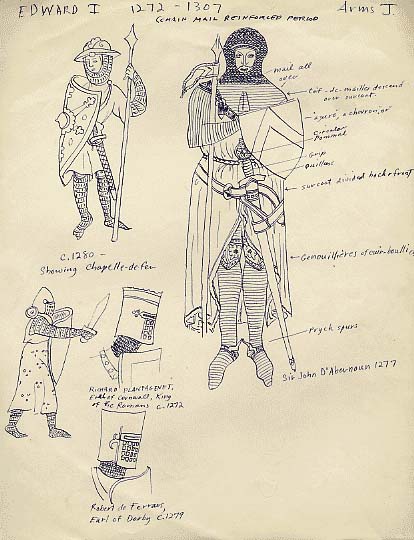 EDWARD I 1272 - 1307
(CHAIN MAIL REINFORCED PERIOD
Arms I.
mail all
over
Coif-de-mailles descend
over surcoat
azure, a chevron, or
Circular
Pommel
Grip
Quillons
surcoat divided back & front
Genouillières of cuir-bouilli
Pryck spurs
Sir John D'Abernoun 1277
c. 1280 -
Showing Chapelle-de-fer
RICHARD PLANTAGENET,
Earl of Cornwall, King
of the Romans c. 1272
Robert de Ferrars,
Earl of Derby c. 1279